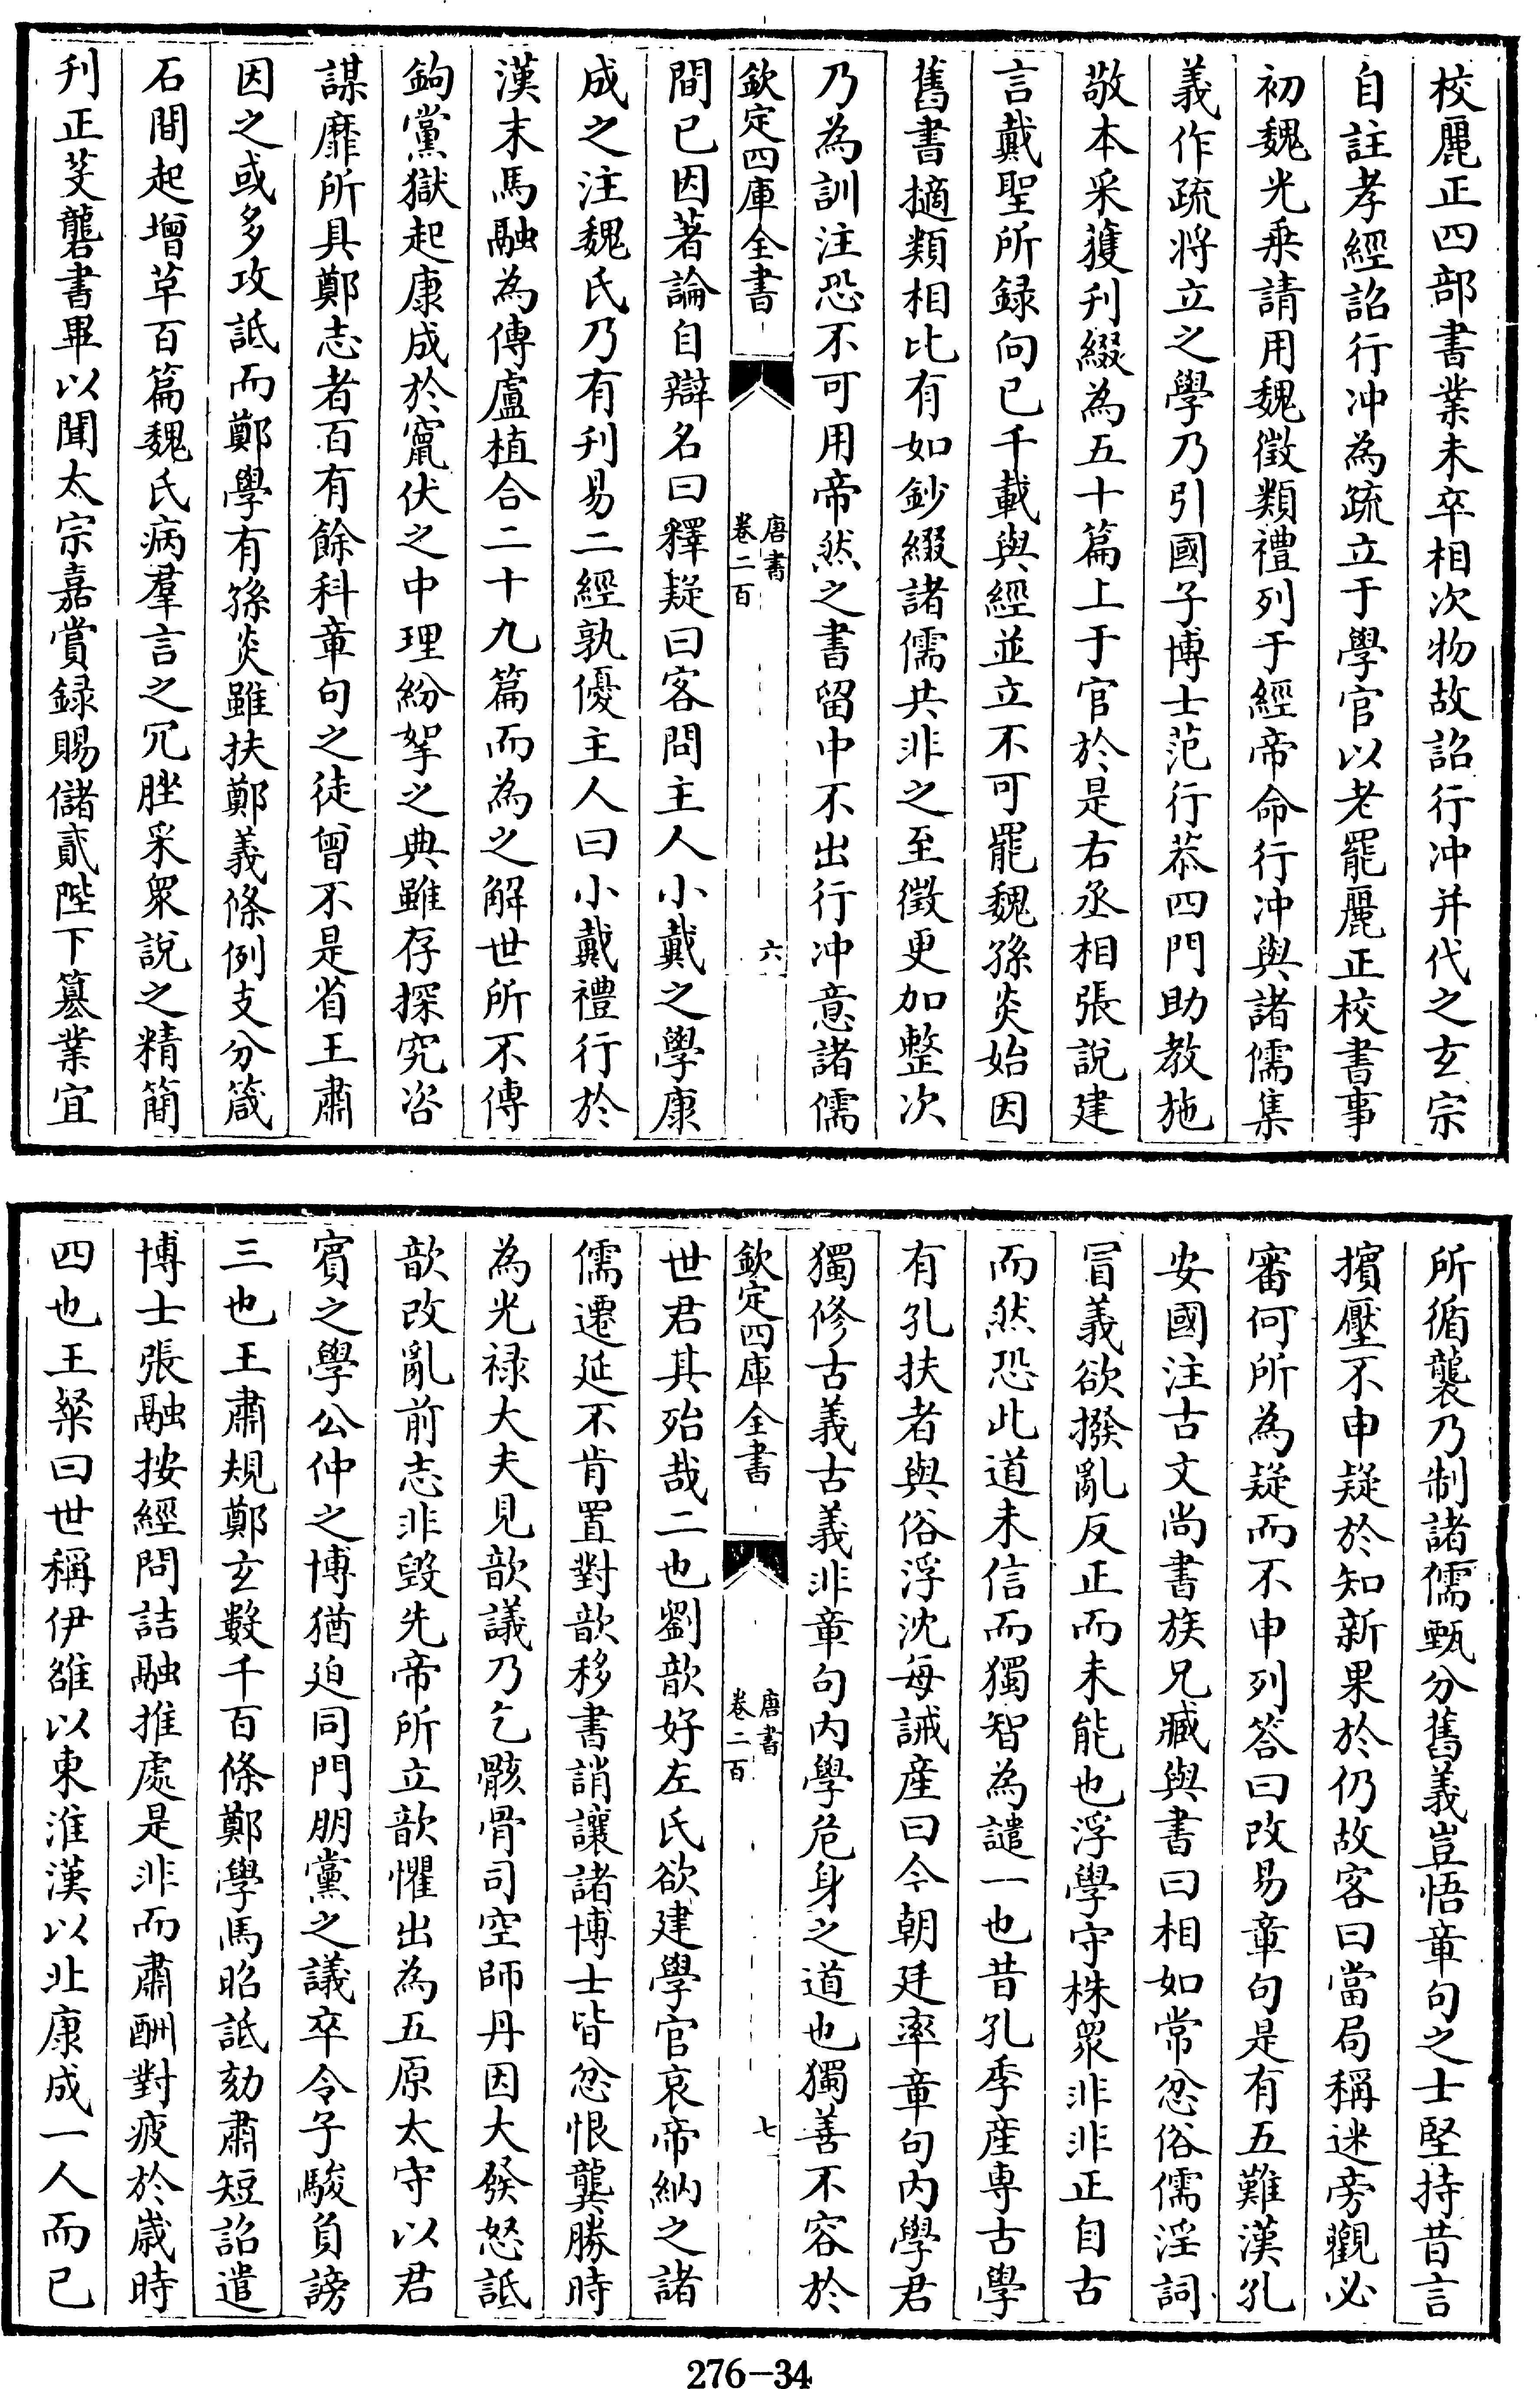 校麗正四部書業未卒相次物故詔行沖并代之玄宗
自註孝經詔行沖為疏立于學官以老罷麗正校書事
初魏光乗請用魏徵類禮列于經帝命行沖與諸儒集
義作疏将立之學乃引國子博士范行恭四門助教施
敬本采獲刊綴為五十篇上于官於是右丞相張說建
言戴聖所録向已千載與經並立不可罷魏孫炎始因
舊書擿類相比有如鈔綴諸儒共非之至徵更加整次
乃為訓注恐不可用帝然之書留中不出行沖意諸儒
欽定四庫全書
唐書
卷二百
六
間已因著論自辯名曰釋疑曰客問主人小戴之學康
成之注魏氏乃有刋易二經孰優主人曰小戴禮行於
漢末馬融為傳盧植合二十九篇而為之解世所不傳
鉤黨獄起康成於竄伏之中理紛拏之典雖存探究咨
謀靡所具鄭志者百有餘科章句之徒曾不是省王肅
因之或多攻詆而鄭學有孫炎雖扶鄭義條例支分箴
石間起增草百篇魏氏病羣言之冗脞采衆說之精簡
刋正芟礱書畢以聞太宗嘉賞録賜儲貳陛下纂業宜
所循襲乃制諸儒甄分舊義豈悟章句之士堅持昔言
擯壓不申疑於知新果於仍故客曰當局稱迷旁觀必
審何所為疑而不申列答曰改易章句是有五難漢孔
安國注古文尚書族兄臧與書曰相如常忿俗儒淫詞
冒義欲撥亂反正而未能也浮學守株衆非非正自古
而然恐此道未信而獨智為譴一也昔孔季產専古學
有孔扶者與俗浮沈每誡產曰今朝廷率章句内學君
獨修古義古義非章句内學危身之道也獨善不容於
欽定四庫全書
唐書
卷二百
七
世君其殆哉二也劉歆好左氏欲建學官哀帝納之諸
儒遷延不肯置對歆移書誚讓諸博士皆忿恨龔勝時
為光禄大夫見歆議乃乞骸骨司空師丹因大發怒詆
歆改亂前志非毁先帝所立歆懼出為五原太守以君
賓之學公仲之博猶迫同門朋黨之議卒令子駿負謗
三也王肅規鄭玄數千百條鄭學馬昭詆劾肅短詔遣
博士張融按經問詰融推處是非而肅酬對疲於歲時
四也王粲曰世稱伊雒以東淮漢以北康成一人而已
276-34